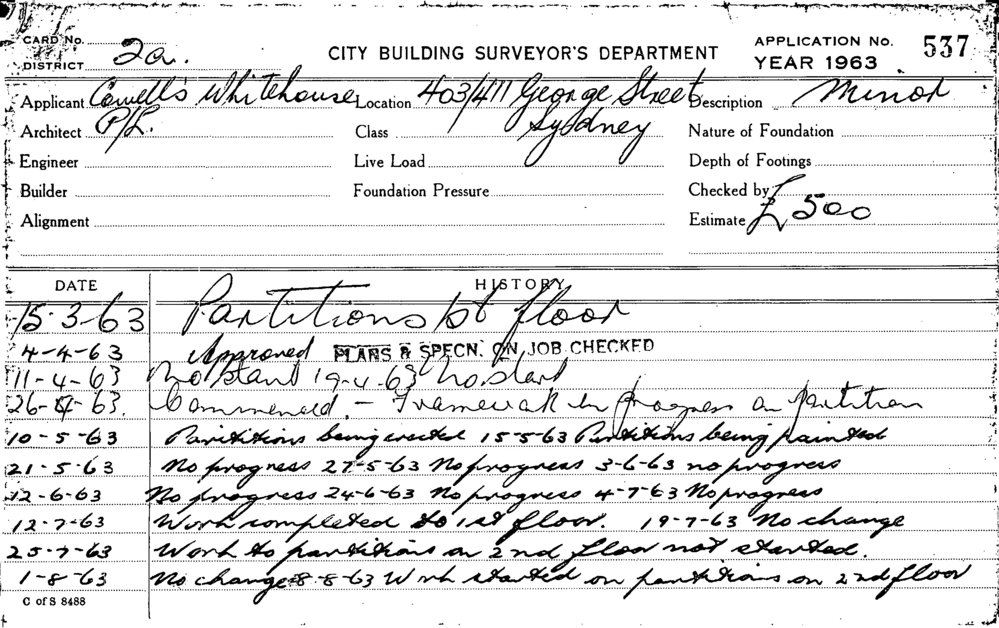 CARD No.
DISTRICT 2a.
CITY BUILDING SURVEYOR'S DEPARTMENT
APPLICATION No. 537
YEAR 1963
Applicant Cowell's Whitehouse P/L. Location 403/411 George Street Sydney Description Minor
Architect Class Nature of Foundation
Engineer Live Load Depth of Footings
Builder Foundation Pressure Checked by
Alignment Estimate £500
DATE HISTORY
15-3-63 Partitions 1st floor
4-4-63 Approved PLANS & SPECN. ON JOB CHECKED
11-4-63 No start 19-4-63 No start
26-4-63. Commenced. - Framework in progress on partition
10-5-63 Partitions being erected 15-5-63 Partitions being painted
21-5-63 No progress 27-5-63 No progress 3-6-63 no progress
12-6-63 No progress 24-6-63 No progress 4-7-63 No progress
12-7-63 Work completed to 1st floor. 19-7-63 No change
25-7-63 Work to partitions on 2nd floor not started.
1-8-63 No change 8-8-63 Work started on partitions on 2nd floor
C of S 8488